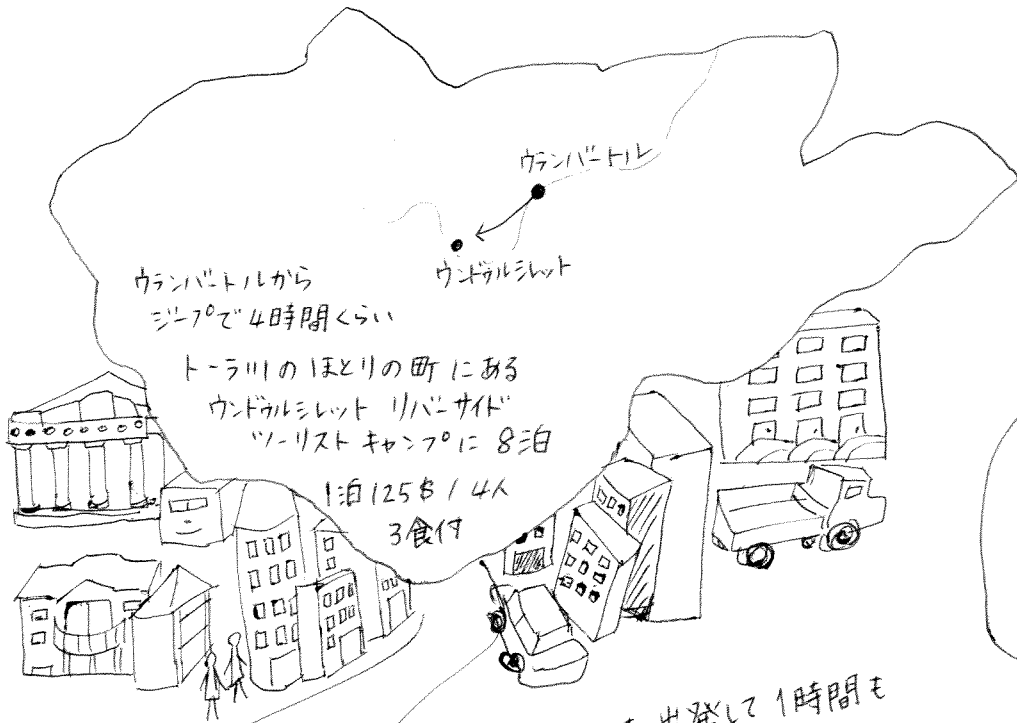 ウランバートル
ウンドゥルシレット
ウランバートルから
ジープで4時間くらい
トーラ川のほとりの町にある
ウンドゥルシレット リバーサイド
ツーリストキャンプに8泊
1泊125$/4人
3食付
出発して1時間も